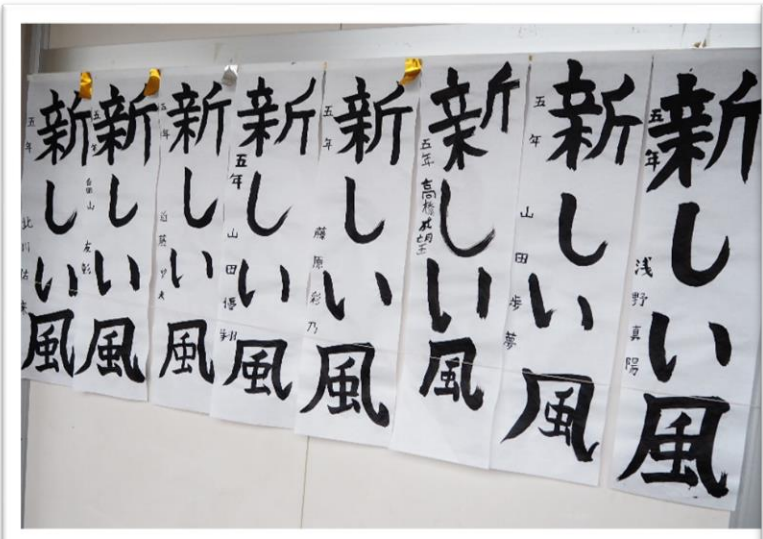 新しい風
五年 浅野真陽
新しい風
五年 山田歩夢
新しい風
五年 高橋
新しい風
五年 藤原彩乃
新しい風
五年 山田
新しい風
五年
新しい風
五年 畠山
新しい風
五年